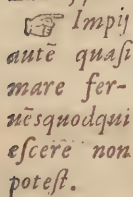 ☞ Impij
autē quaſi
mare fer-
uēsquodqui
eſcerē non
poteſt.